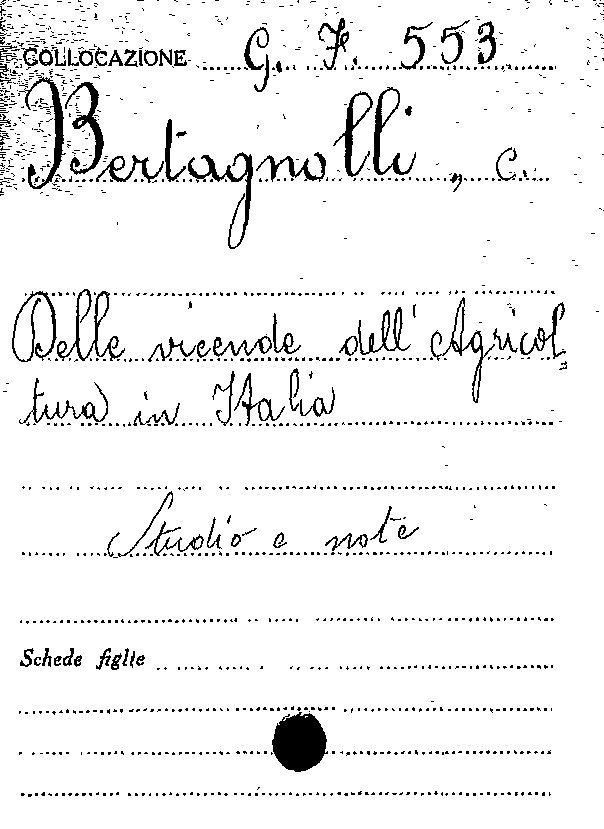 COLLOCAZIONE G. F. 553
Bertagnolli, C.
Delle vicende dell'Agricol„
tura in Italia
Studio e note
Schede figlie